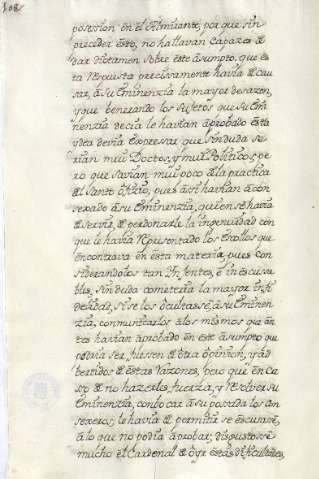 108
posession en el Almirante, por que sin
preceder esto, no hallavan capazes de
dar dictamen sobre este asumpto, que es-
ta repuesta precisamente havia de cau-
sar, à su Eminenzia la mayor desazon,
y que benerando los sujetos que su Emi-
nenzia decia le havian aprobado esta
ydea devia expresar que sin duda se-
rian mui Doctos, y mui Politicos, pe-
ro que savian mui poco de la practica
del Santo Ofizio, pues asi havian acon-
sexado à su Eminenzia, quien se havia
de servir, de perdonarle la ingenuidad con
que le havia representado los escollos que
encontrava en esta materia, pues con-
siderandolos tan
sin duda cometeria la mayor infi-
delidad, si se los ocultasse, à su Eminen-
zia, comunicarlos a los mismos que an-
tes havian aprobado en este asumpto que
podria ser, fuessen de otra opinion, y ad-
bertidos de estas raizones, pero que en ca-
so de no hazerles fuerza, y resolver su
Eminenzia, conbocar à su possada los con-
sexeros, le havia de permitir se escusase,
à lo que no podia aprobar; disgustosse
mucho el Cardenal de oyr estas dificultades,